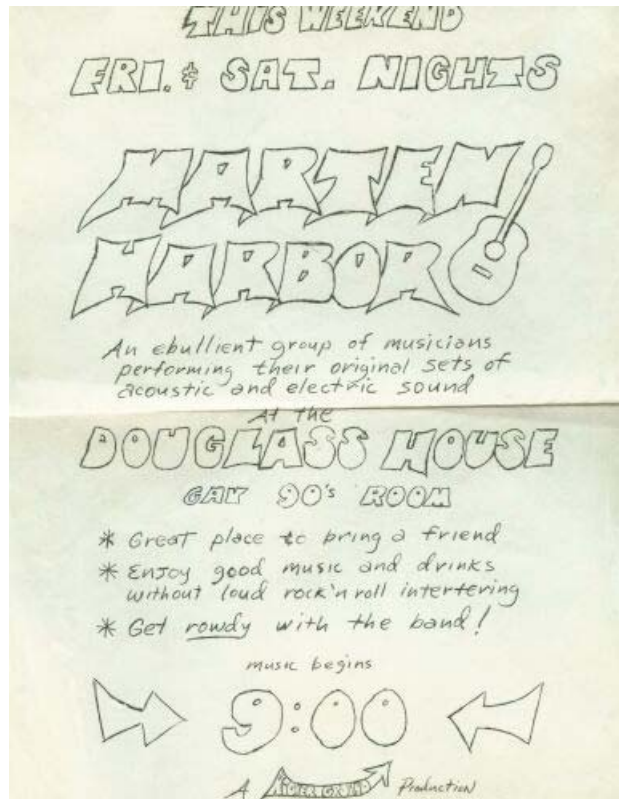 THIS WEEKEND
FRI. & SAT. NIGHTS
MARTEN
HARBOR
An ebullient group of musicians
performing their original sets of
acoustic and electric sound
At the
DOUGLASS HOUSE
GAY 90's ROOM
* Great place to bring a friend
* Enjoy good music and drinks
without loud rock'n roll interfering
* Get rowdy with the band!
music begins
9:00
A HIGHER GROUND Production